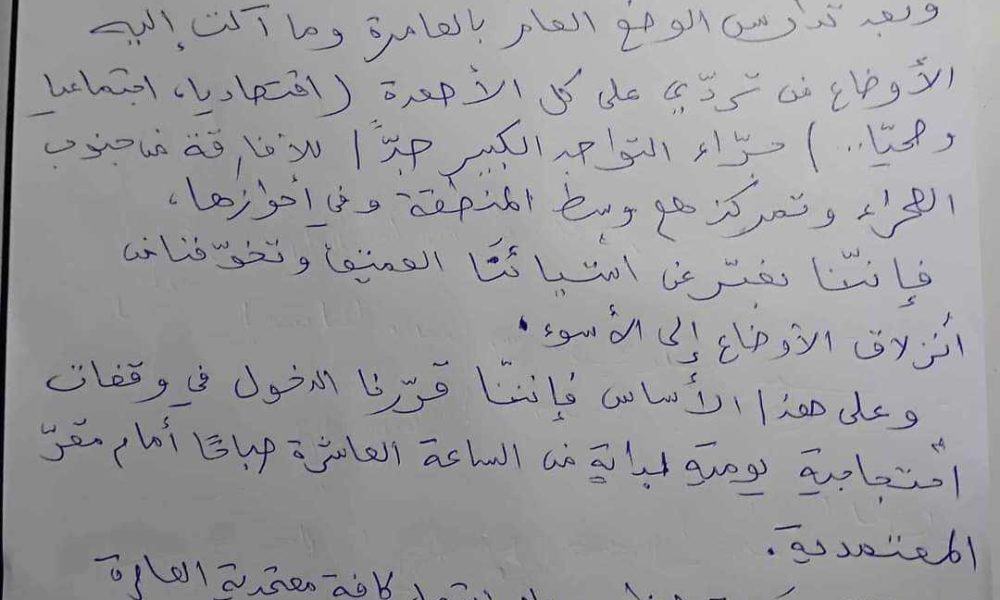 وبعد تدارس الوضع العام بالعامرة وما آلت إليه
الأوضاع من تردّي على كل الأصعدة (اقتصاديا، اجتماعيا
وصحيّا..) جرّاء التواجد الكبير جدّا للأفارقة من جنوب
الصحراء وتمركزهم وسط المنطقة وفي أحوازها،
فإنّنا نعبّر عن استيائنا العميق وتخوّفنا من
انزلاق الأوضاع إلى الأسوء.
وعلى هذا الأساس فإننّا قرّرنا الدخول في وقفات
احتجاجية يومية بداية من الساعة العاشرة صباحًا أمام مقرّ
المعتمدية.
كافة معتمدية العامرة